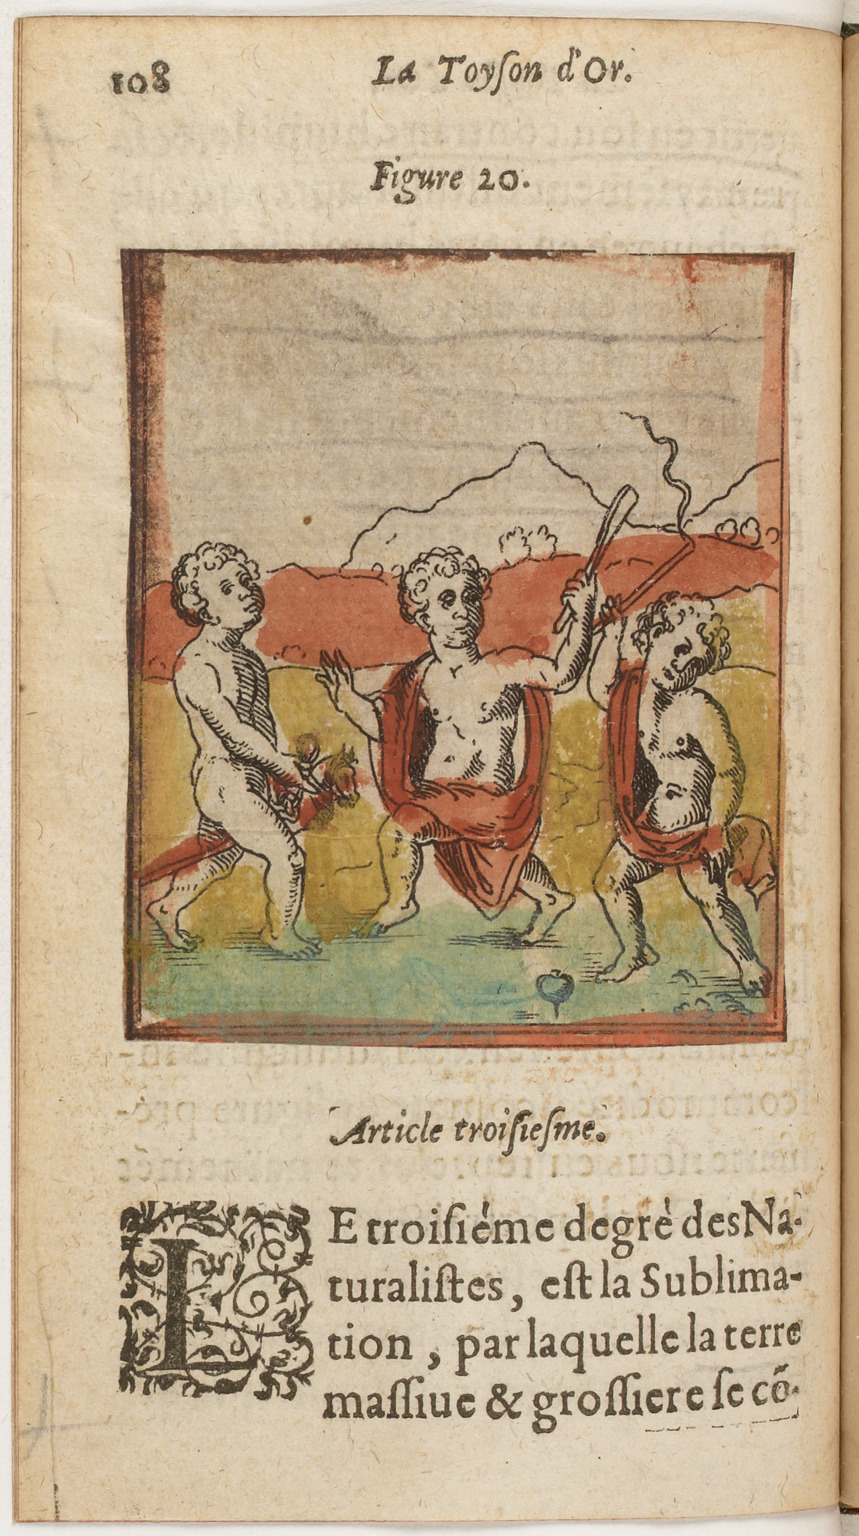 108
La Toyſon d'Or.
Figure 20.
Article troiſieſme.
LE troiſiéme degrè des Na-
turaliſtes, eſt la Sublima-
tion, par laquelle la terre
maſſiue & groſſiere ſe cõ-